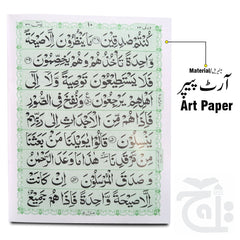 ١٠
كُنْتُمْ صٰدِقِيْنَ مَا يَنْظُرُوْنَ اِلَّا صَيْحَةً
وَّاحِدَةً تَاْخُذُهُمْ وَهُمْ يَخِصِّمُوْنَ
فَلَا يَسْتَطِيْعُوْنَ تَوْصِيَةً وَّلَآ اِلٰٓى
اَهْلِهِمْ يَرْجِعُوْنَ وَنُفِخَ فِي الصُّوْرِ
فَاِذَا هُمْ مِّنَ الْاَجْدَاثِ اِلٰى رَبِّهِمْ
يَنْسِلُوْنَ قَالُوْا يٰوَيْلَنَا مَنْۢ بَعَثَنَا
مِنْ مَّرْقَدِنَا هٰذَا مَا وَعَدَ الرَّحْمٰنُ
وَصَدَقَ الْمُرْسَلُوْنَ اِنْ كَانَتْ
اِلَّا صَيْحَةً وَّاحِدَةً فَاِذَا هُمْ جَمِيْعٌ
Material
آرٹ پیپر
Art Paper